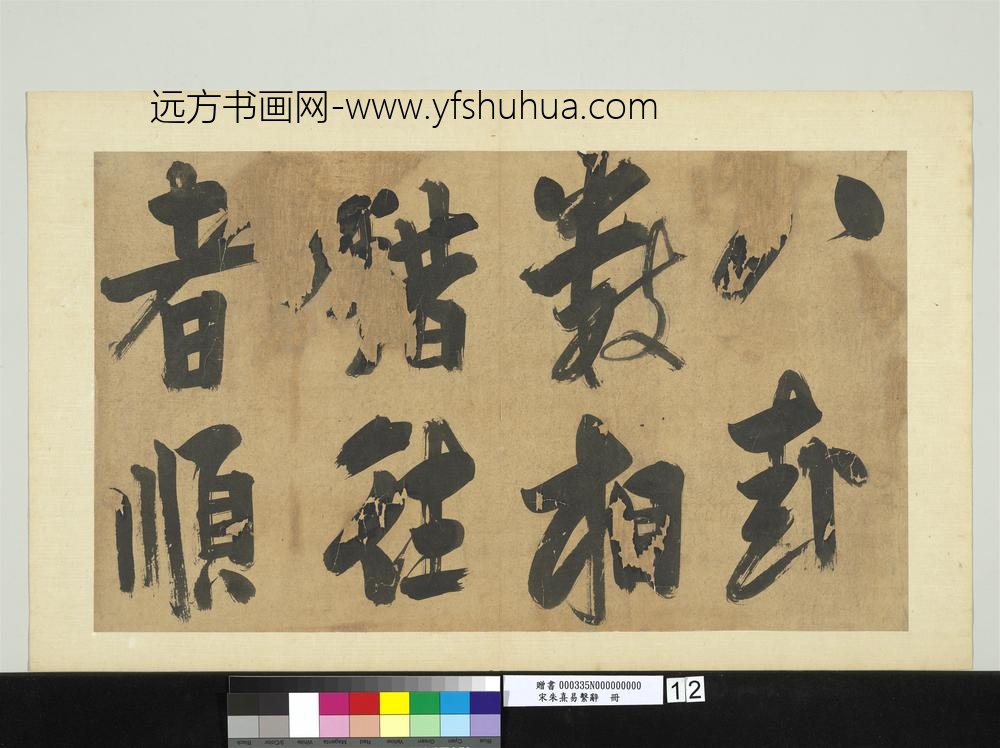 远方书画网-www.yfshuhua.com
八卦
數相
錯往
者順
贈書 000335N000000000
宋朱熹易繫辭 冊
12
Black
3/Color
White
Magenta
Red
Yellow
Green
Cyan
Blue